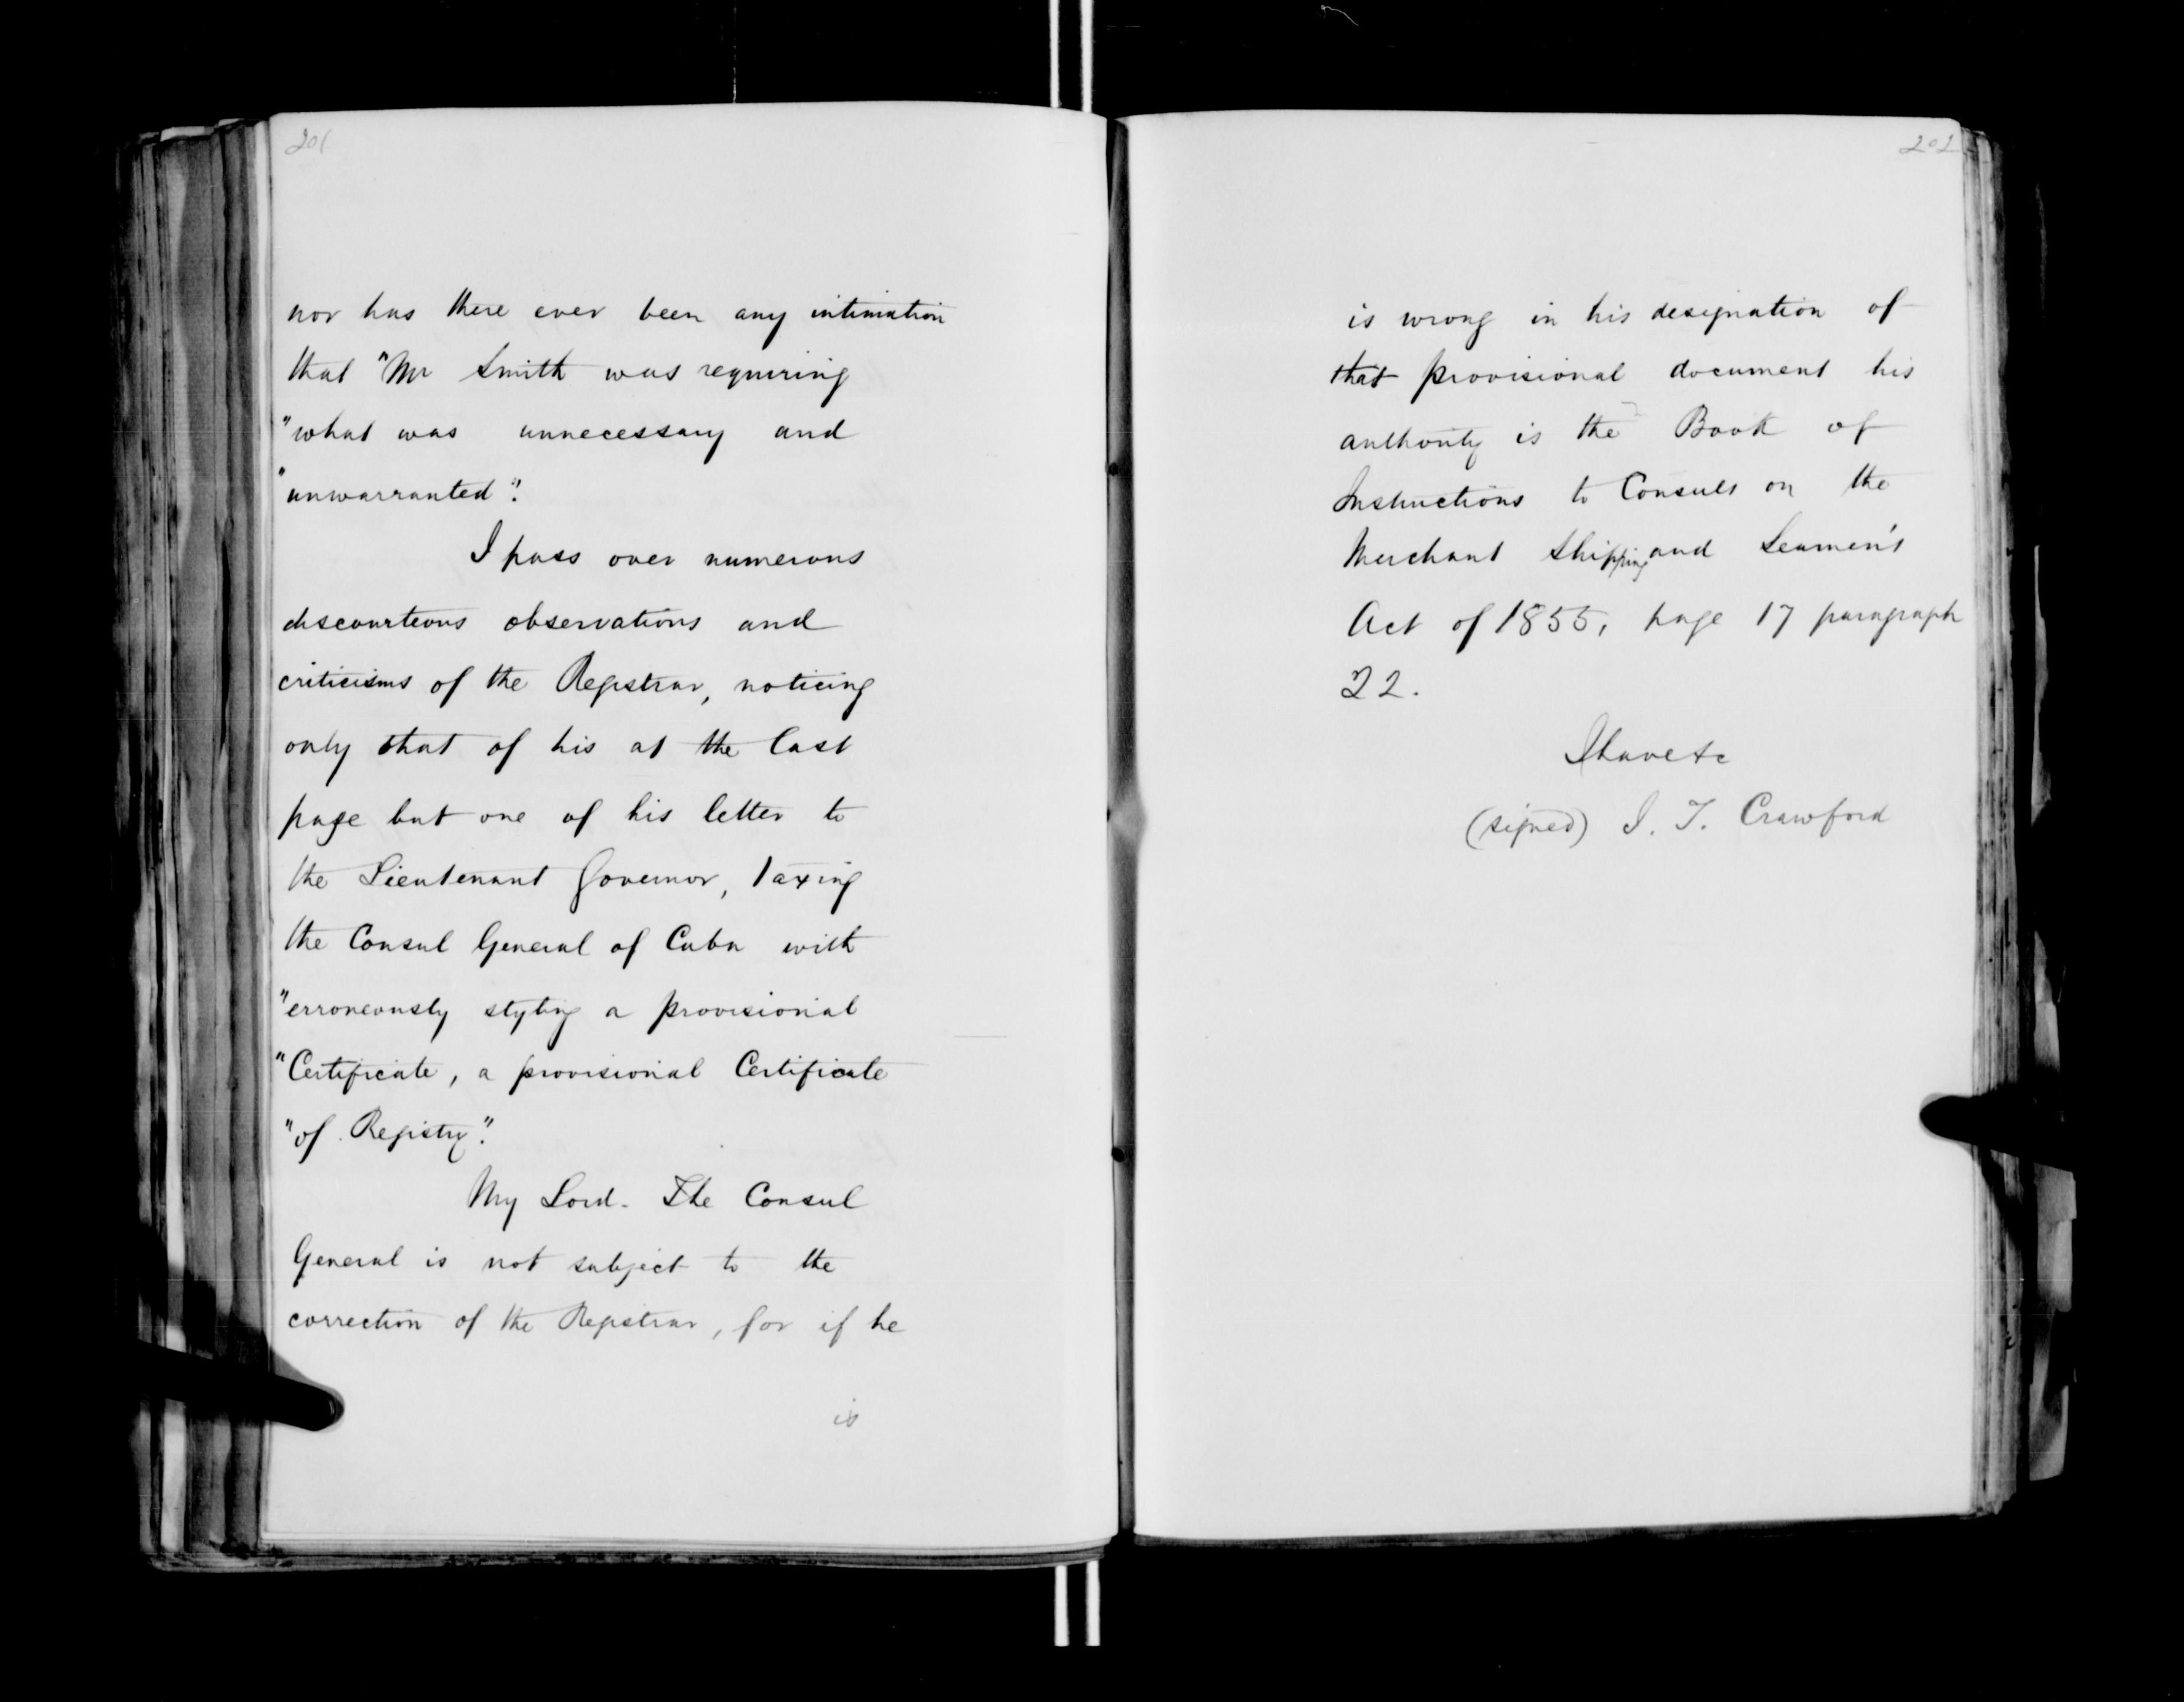 201
nor has there ever been any intimation
that "Mr Smith was requiring
"what was unnecessary and
"unwarranted".
I pass over numerous
discourteous observations and
criticisms of the Registrar, noticing
only that of his at the last
page but one of his letter to
the Lieutenant Governor, taxing
the Consul General of Cuba with
"erroneously styling a provisional
"Certificate, a provisional Certificate
"of Registry".
My Lord. The Consul
General is not subject to the
correction of the Registrar, for if he
is
202
is wrong in his designation of
that provisional document his
authority is the Book of
Instructions to Consuls on the
Merchant Shipping and Seamen's
Act of 1855, page 17 paragraph
22.
I have &c
(signed) J. T. Crawford